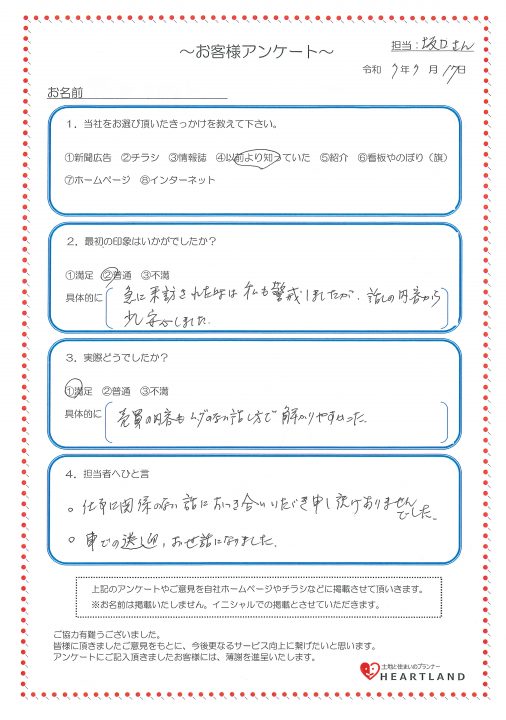 担当：坂口さん
～お客様アンケート～
令和 7年 7月 17日
お名前
1．当社をお選び頂いたきっかけを教えて下さい。
①新聞広告 ②チラシ ③情報誌 ④以前より知っていた ⑤紹介 ⑥看板やのぼり（旗）
⑦ホームページ ⑧インターネット
2．最初の印象はいかがでしたか？
①満足 ②普通 ③不満
具体的に 急に来訪された時は私も警戒しましたが、話しの内容から
少し安心しました。
3．実際どうでしたか？
①満足 ②普通 ③不満
具体的に 売買の内容もムダのない話し方で解かりやすかった。
4．担当者へひと言
○ 仕事に関係のない話におつき合いいただき申し訳ありません
でした。
○ 車での送迎、お世話になりました。
上記のアンケートやご意見を自社ホームページやチラシなどに掲載させて頂いきます。
※お名前は掲載いたしません。イニシャルでの掲載とさせていただきます。
ご協力有難うございました。
皆様に頂きましたご意見をもとに、今後更なるサービス向上に繋げたいと思います。
アンケートにご記入頂きましたお客様には、薄謝を進呈いたします。
土地と住まいのプランナー
HEARTLAND